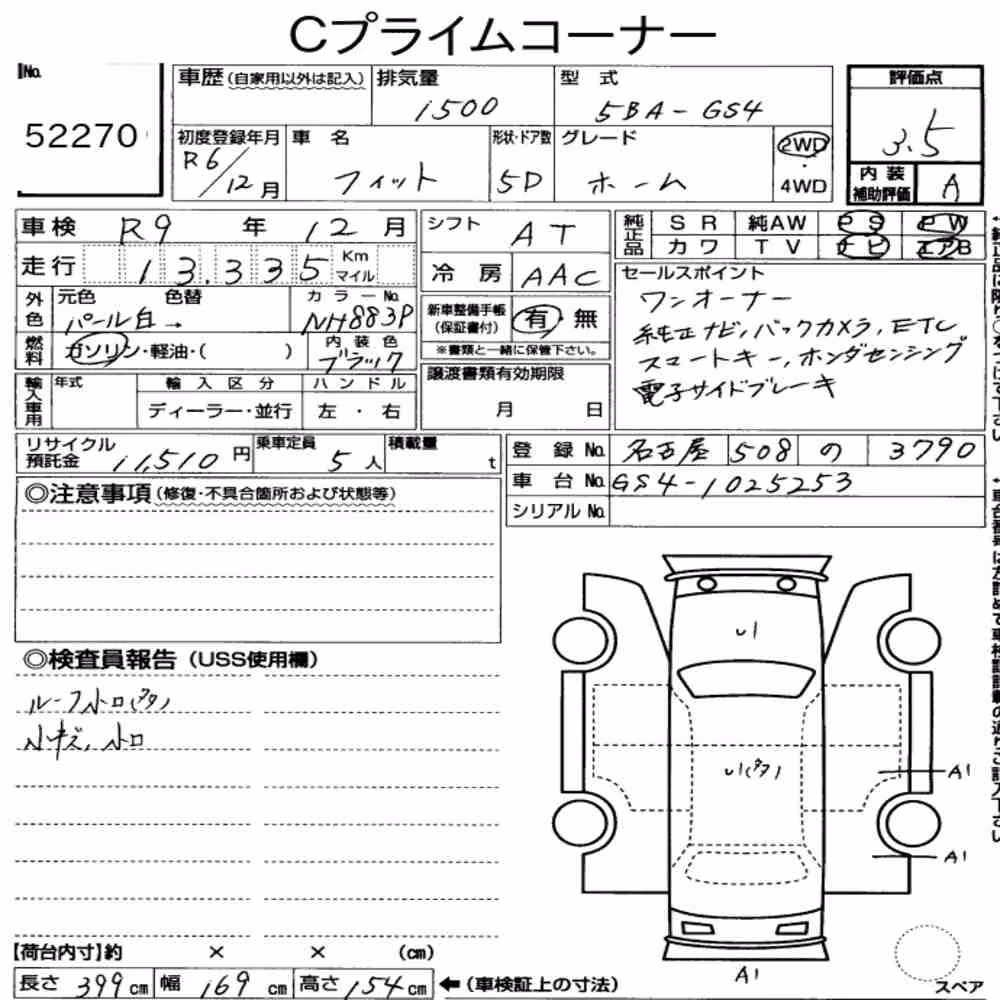 Cプライムコーナー
No.
52270
車歴(自家用以外は記入)
排気量
1500
型 式
5BA-GS4
評価点
3.5
初度登録年月
R6/12月
車 名
フィット
形状・ドア数
5D
グレード
ホーム
2WD
・
4WD
内 装
補助評価
A
車検 R9 年 12 月
シフト
AT
純正品
SR 純AW PS PW
カワ TV ナビ エアB
走行 13,335 Km
マイル
冷 房
AAC
外色
元色 色替
パール白→
カラーNo.
NH883P
燃料
ガソリン・軽油・( )
内装色
ブラック
新車整備手帳
(保証書付)
有・無
※書類と一緒に保管下さい。
セールスポイント
ワンオーナー
純正ナビ,バックカメラ,ETC
スマートキー,ホンダセンシング
電子サイドブレーキ
輸入車用
年式
輸入区分
ディーラー・並行
ハンドル
左・右
譲渡書類有効期限
月 日
リサイクル
預託金
11,510円
乗車定員
5人
積載量
t
登 録 No. 名古屋 508 の 3790
車 台 No. GS4-1025253
シリアル No.
◎注意事項(修復・不具合箇所および状態等)
◎検査員報告(USS使用欄)
ルーフ小凹(タタ)
小キズ,小凹
U1
U1(タタ)
A1
A1
A1
スペア
【荷台内寸】約 × × (cm)
長さ 399 cm 幅 169 cm 高さ 154 cm ←(車検証上の寸法)